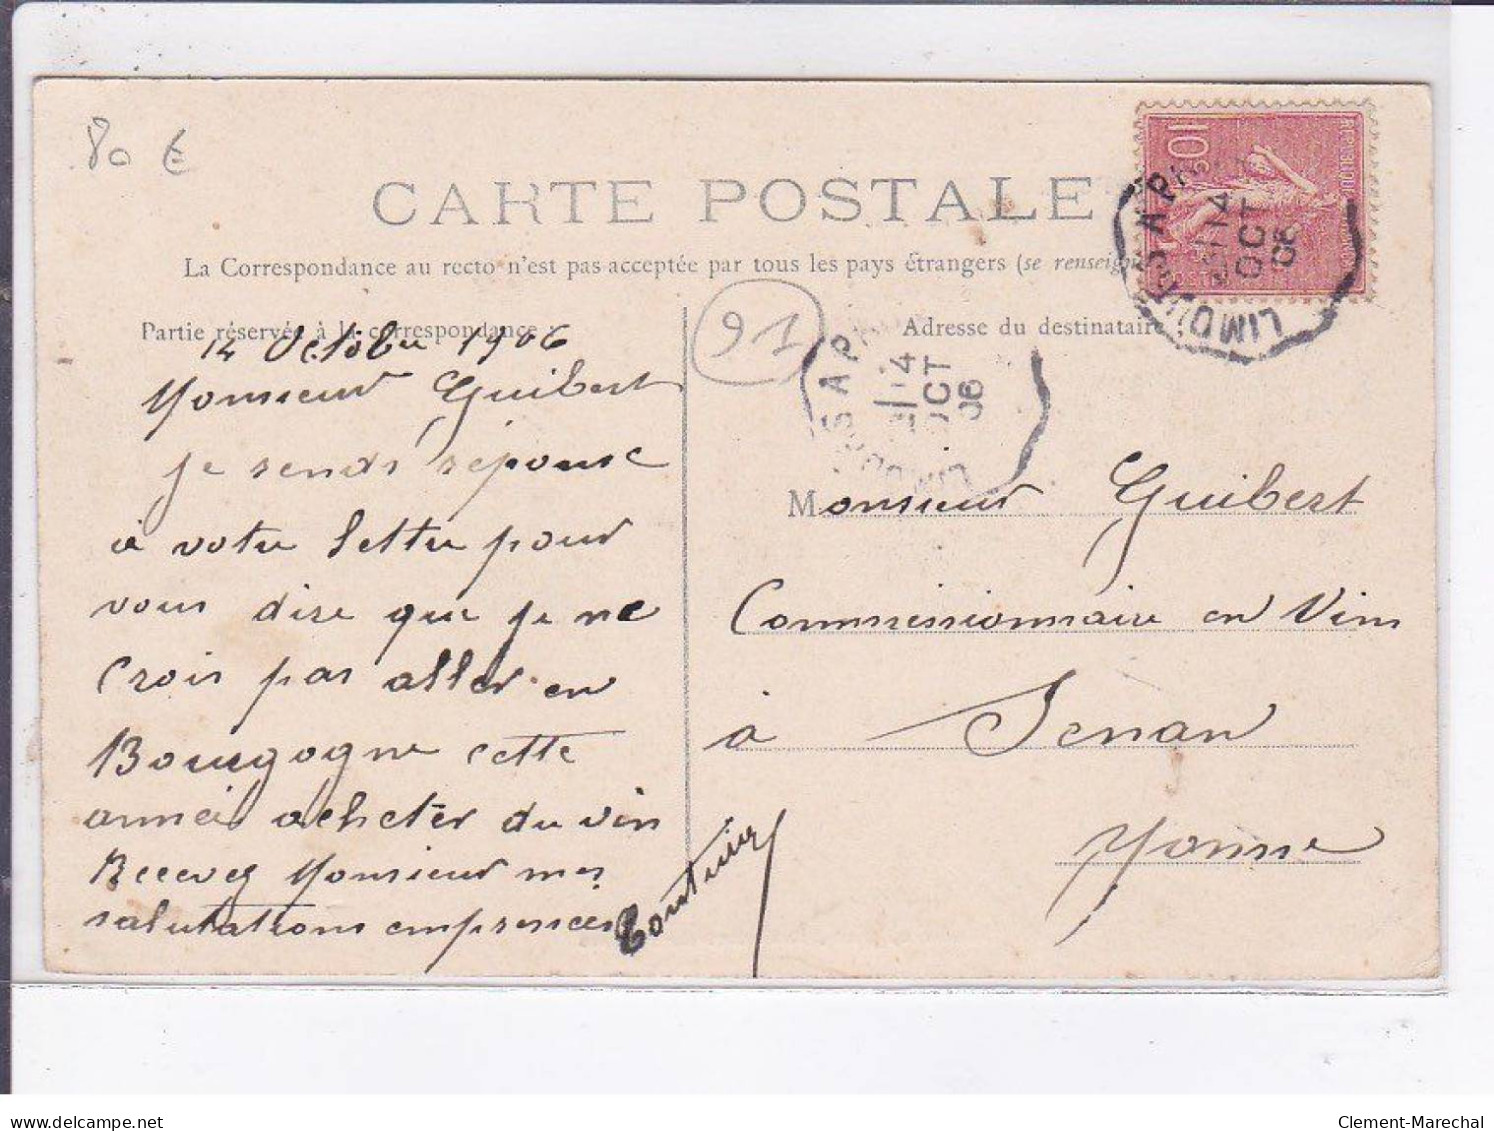 80 €
CARTE POSTALE
La Correspondance au recto n'est pas acceptée par tous les pays étrangers (se renseign
Partie réservée à la correspondance :
91
Adresse du destinataire
14 Octobre 1906
Monsieur Guibert
je rends réponse
à votre lettre pour
vous dire que je ne
crois pas aller en
Bourgogne cette
année acheter du vin
Recevez Monsieur mes
salutations empressées
Monsieur Guibert
Commissionnaire en Vins
à Senan
Yonne
10
LIMOURS A PARIS
14
OCT
06
LIMOURS A PARIS
14
OCT
06
www.delcampe.net
Clement-Marechal